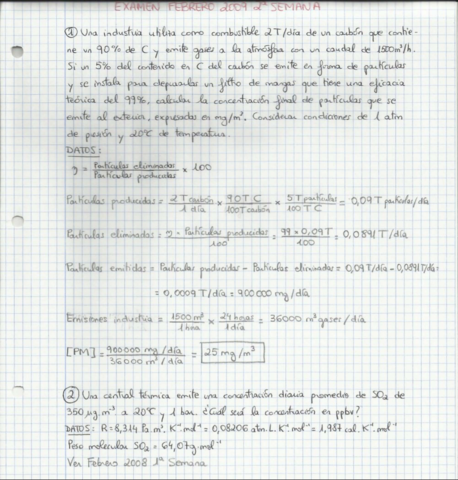 EXAMEN FEBRERO 2009 2ª SEMANA
① Una industria utiliza como combustible 2T/día de un carbón que contie-
ne un 90% de C y emite gases a la atmósfera con un caudal de 1500m³/h.
Si un 5% del contenido en C del carbón se emite en forma de partículas
y se instala para depurarlas un filtro de mangas que tiene una eficacia
teórica del 99%, calcular la concentración final de partículas que se
emite al exterior, expresadas en mg/m³. Considerar condiciones de 1 atm
de presión y 20°C de temperatura.
DATOS:
η = Partículas eliminadas / Partículas producidas × 100
Partículas producidas = 2T carbón / 1 día × 90T C / 100T carbón × 5T partículas / 100 T C = 0,09T partículas/día
Partículas eliminadas = η · Partículas producidas / 100 = 99 × 0,09T / 100 = 0,0891 T/día
Partículas emitidas = Partículas producidas - Partículas eliminadas = 0,09T/día - 0,0891T/día =
= 0,0009 T/día = 900000 mg/día
Emisiones industria = 1500m³ / 1 hora × 24 horas / 1 día = 36000 m³ gases/día
[PM] = 900000 mg/día / 36000 m³/día = 25 mg/m³
② Una central térmica emite una concentración diaria promedio de SO₂ de
350 μg m⁻³ a 20°C y 1 atm. ¿Cuál será la concentración en ppbv?
DATOS: R = 8,314 Pa.m³. K⁻¹ mol⁻¹ = 0,08206 atm.L. K⁻¹ mol⁻¹ = 1,987 cal. K⁻¹. mol⁻¹
Peso molecular SO₂ = 64,07g·mol⁻¹
Ver Febrero 2008 1ª Semana